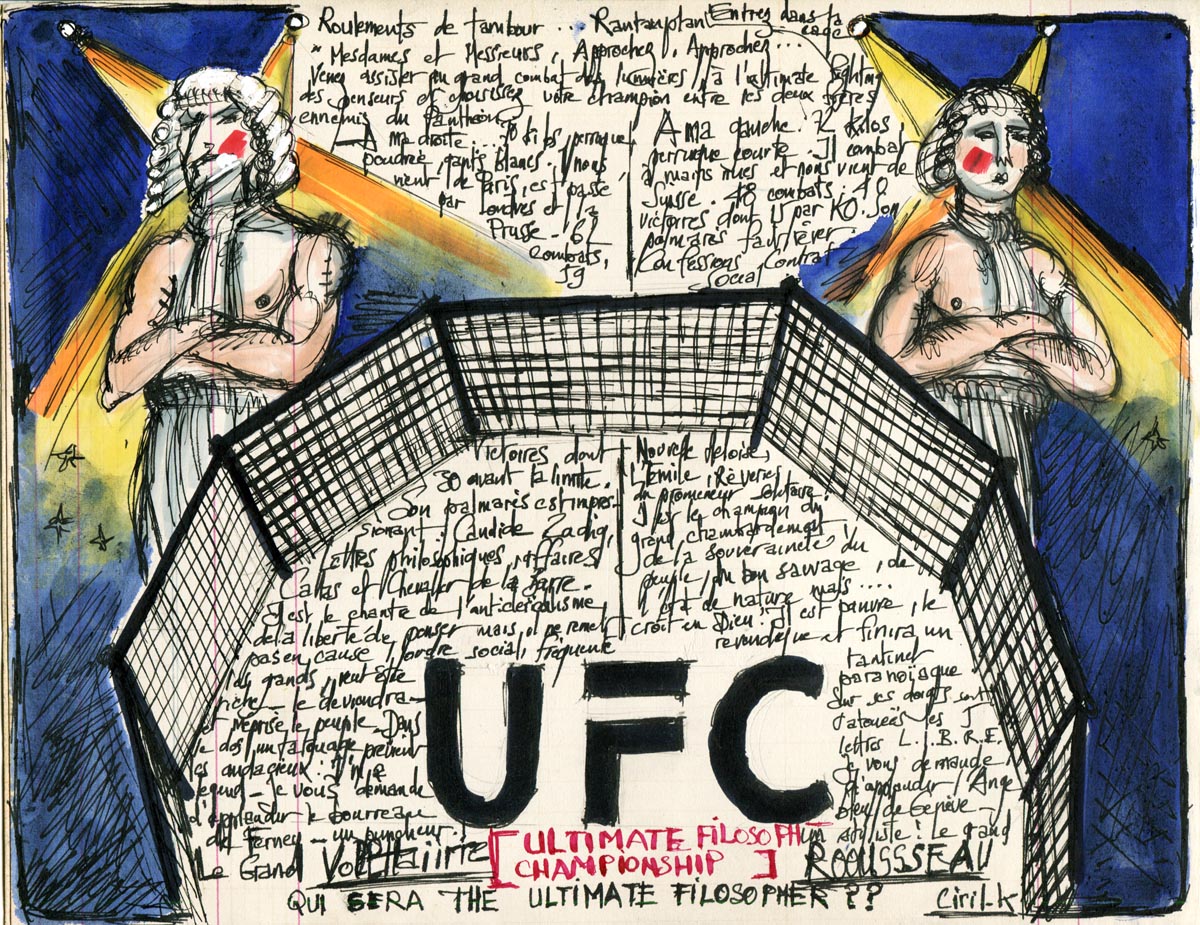 Roulements de tambour ... Rantanplan Entrez dans la cage
"Mesdames et Messieurs, Approchez, Approchez...
Venez assister au grand combat des lumières, à l'ultimate fighting
des penseurs et choisissez votre champion entre les deux frères
ennemis du Panthéon
A ma droite ... kilos, perruque
poudrée, gants blancs. Il nous
vient de Paris, est passé
par Londres et la
Prusse - 62
combats,
59
victoires dont
30 avant la limite.
Son palmarès est impres-
sionnant : Candide, Zadig,
Lettres philosophiques, affaires
Calas et Chevalier de la Barre.
Il est le chantre de l'anticléricalisme,
de la liberté de penser mais il ne remet
pas en cause l'ordre social, fréquente
les grands, veut être
riche - le deviendra -
et méprise le peuple - Dans
le dos un tatouage prévient
les audacieux :
Je vous demande
d'applaudir le bourreau
de Ferney - un puncheur !
Le Grand Volltaiirre
A ma gauche. Kilos
perruque courte. Il combat
à mains nues et nous vient de
Suisse. 48 combats. 48
victoires dont 15 par KO. Son
palmarès fait rêver.
Confessions, Contrat
Social
Nouvelle Héloïse,
L'Emile, Rêveries
du promeneur solitaire.
Il est le champion du
grand chambardement
de la souveraineté du
peuple, du bon sauvage, de
l'état de nature mais ....
croit en Dieu. Il est pauvre, le
revendique et finira un
tantinet
paranoïaque
Sur ses doigts sont
tatoués les 5
lettres L.I.B.R.E.
Je vous demande
d'applaudir l'Ange
bleu de Genève -
un soliste : le grand
ROOUSSSEAU
UFC
[ULTIMATE FILOSOPH
CHAMPIONSHIP]
QUI SERA THE ULTIMATE FILOSOPHER ??
Ciril-k